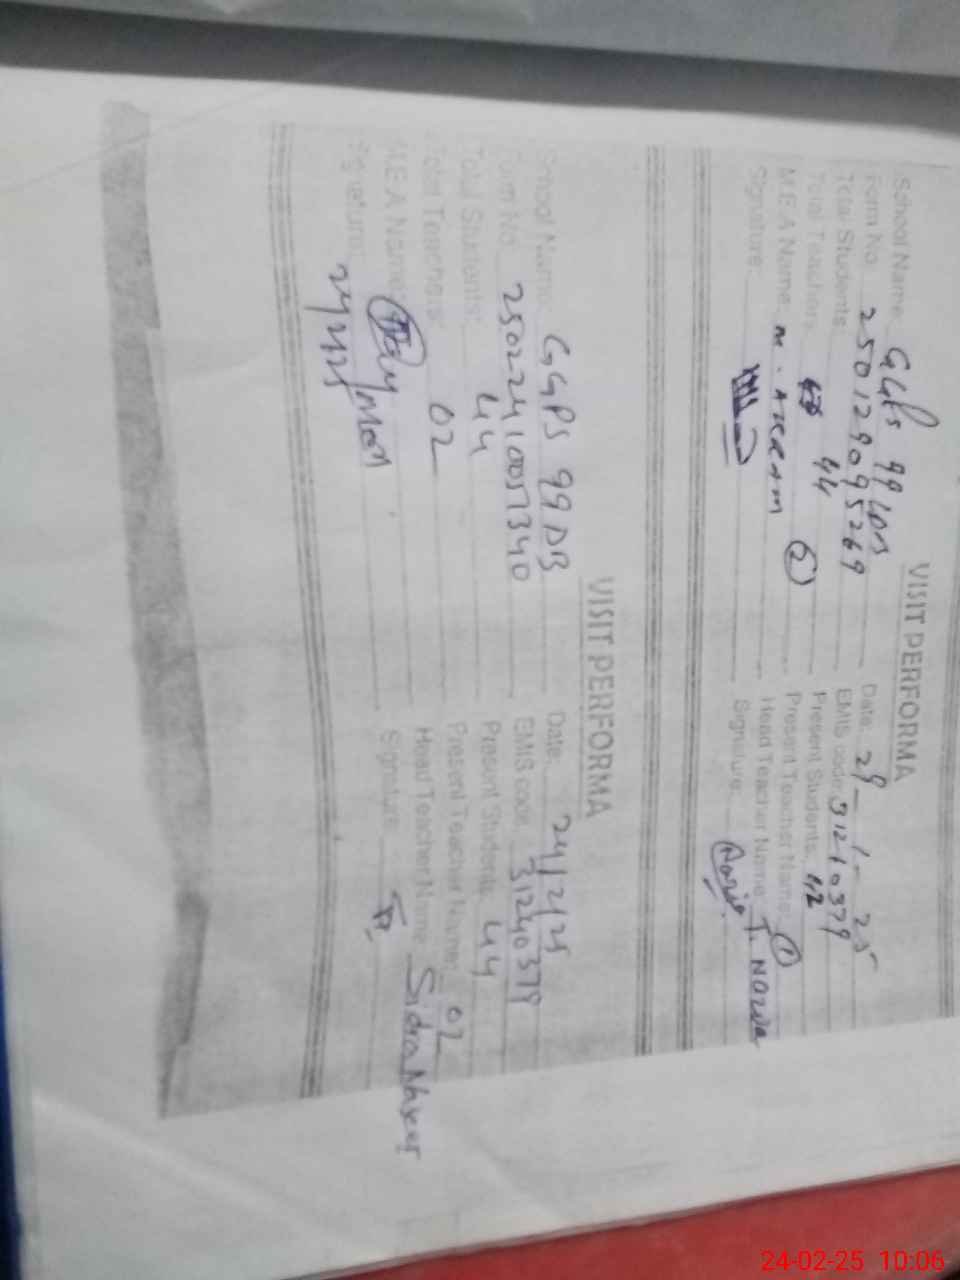 VISIT PERFORMA
School Name: GGPS 99 Date: 29-1-25
Form No. 250129095269 EMIS code: 31240379
Total Students: 44 Present Students: 42
Total Teachers: 2 Present Teacher Name: 1
M.E.A Name: M. Akram Head Teacher Name: T. Nazia
Signature: Signature: Nazia
VISIT PERFORMA
School Name: GGPS 99 DB Date: 24/2/25
Form No. 250224100571340 EMIS code: 31240379
Total Students: 44 Present Students: 44
Total Teachers: 02 Present Teacher Name: 02
M.E.A Name: Head Teacher Name: Sidra Naseer
Signature: Signature:
24/2/25
24-02-25 10:06